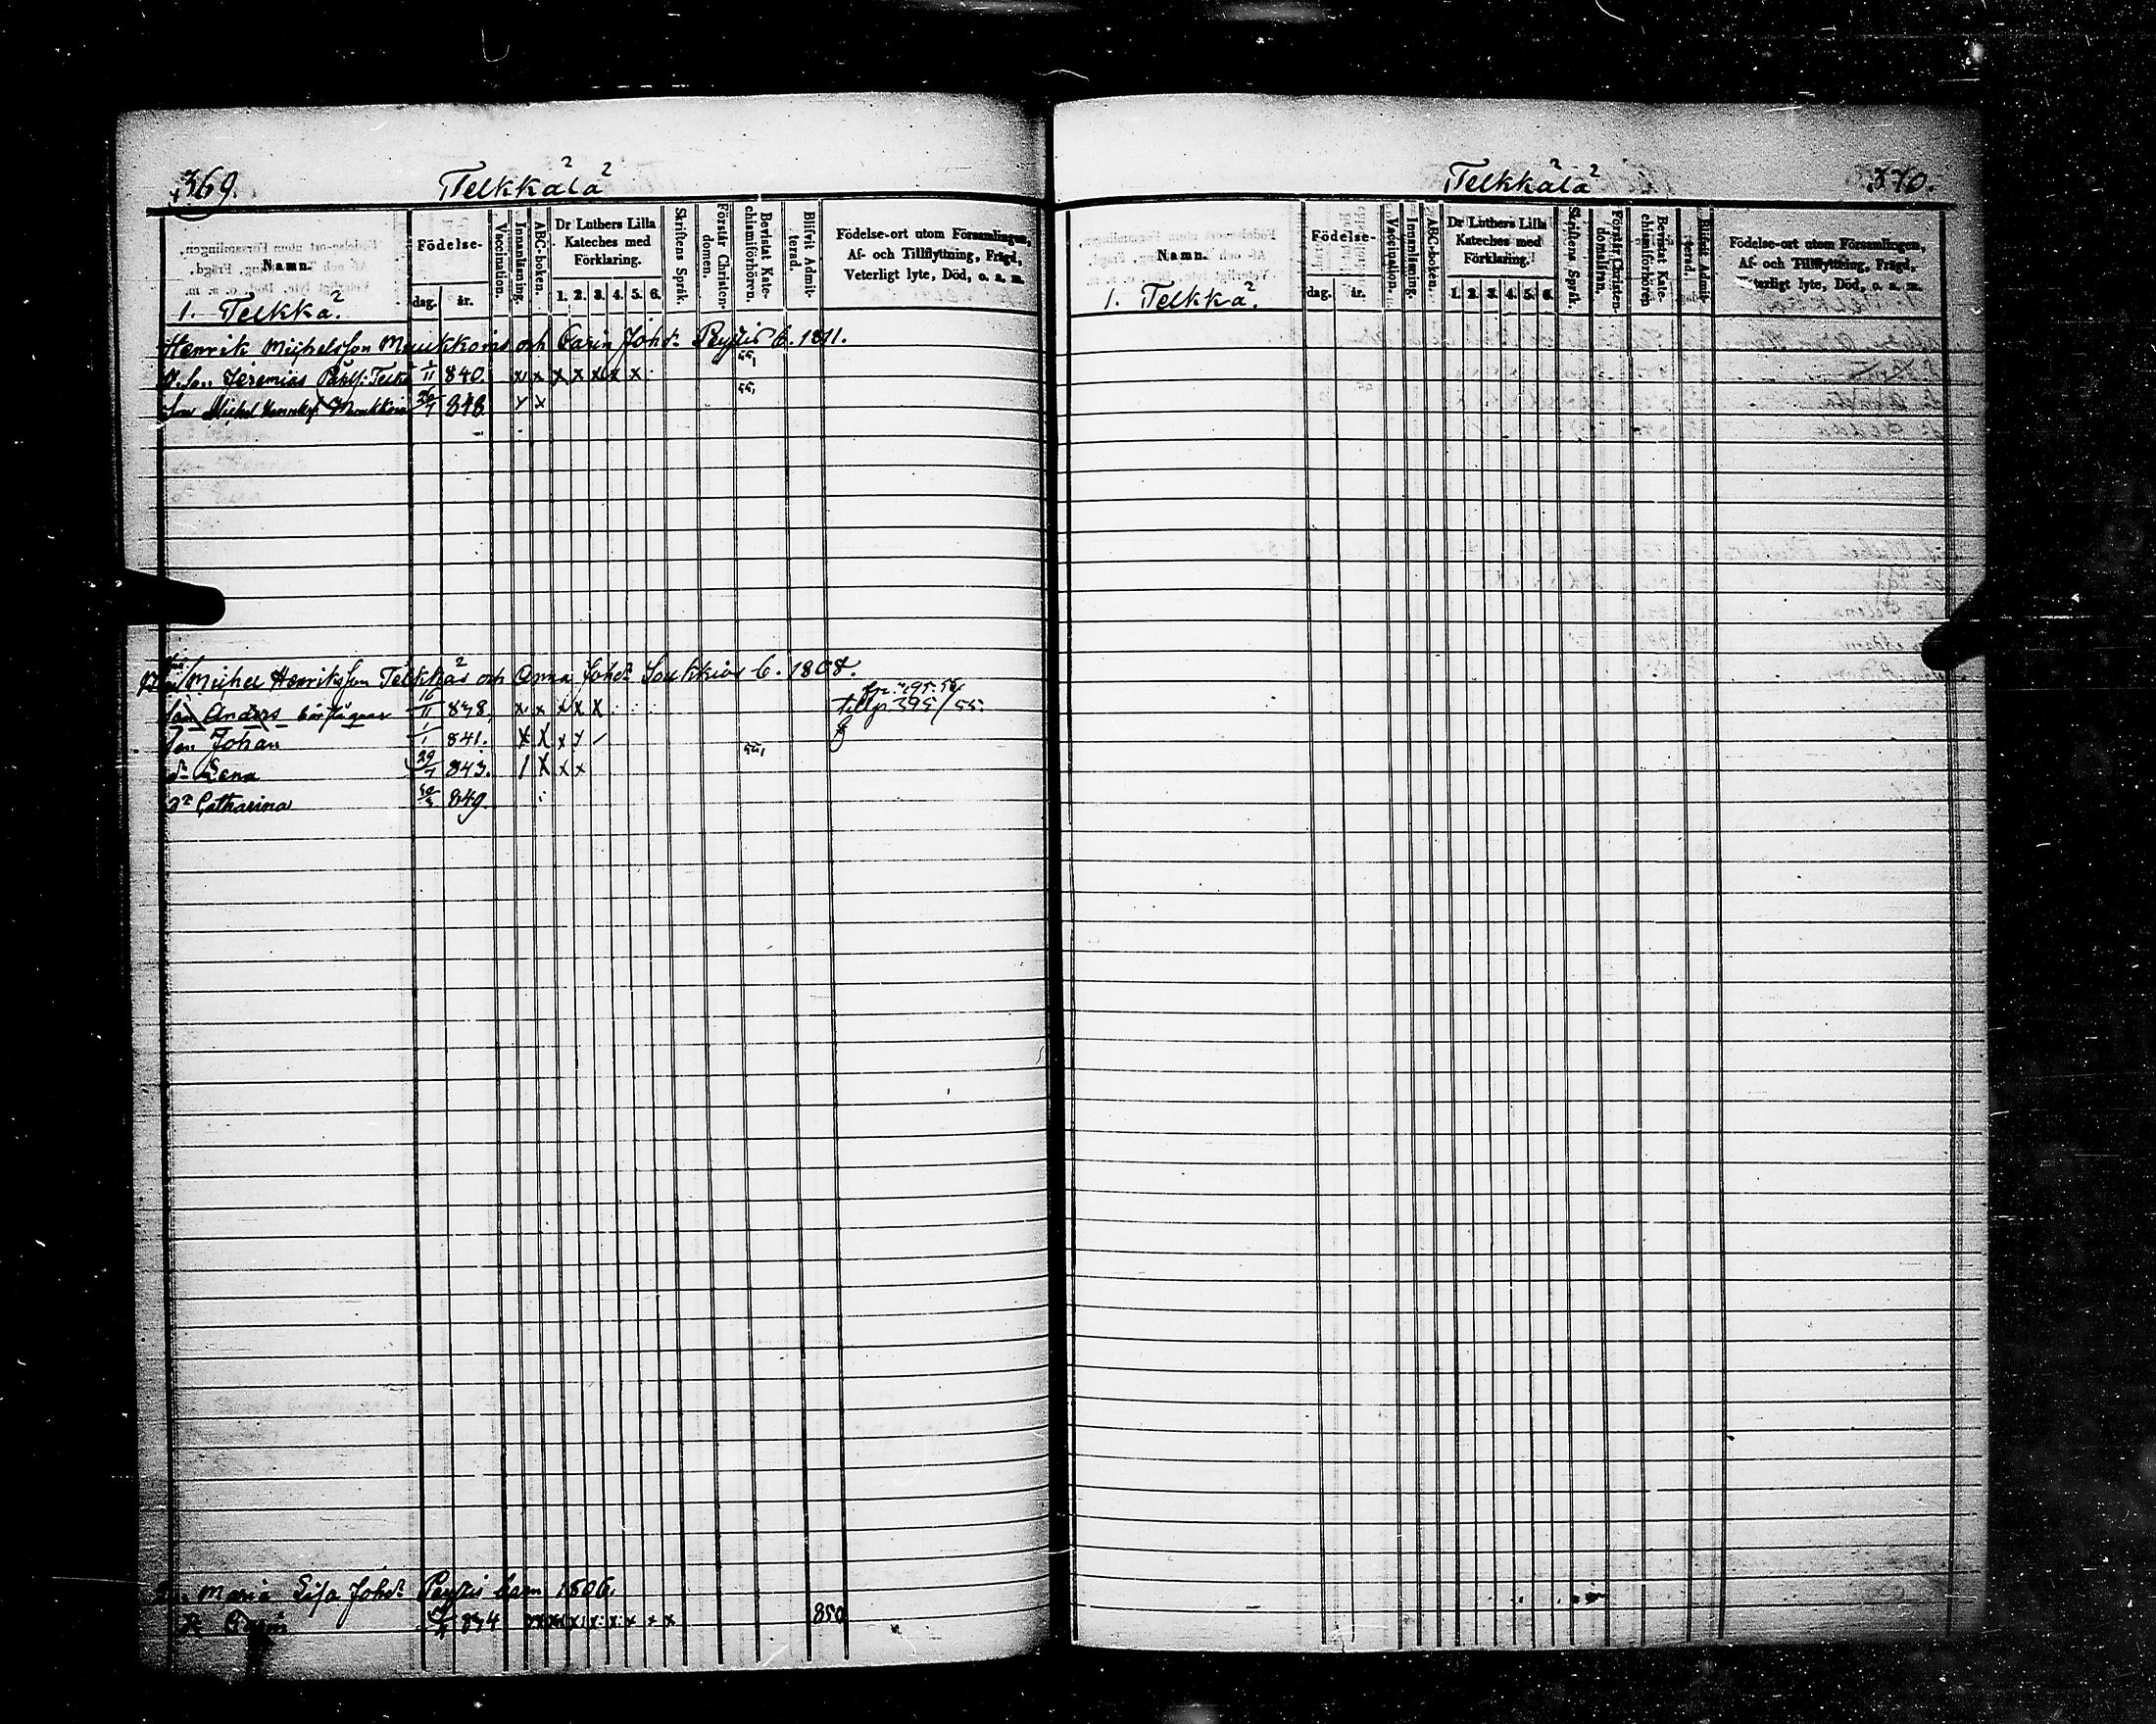 369.
Telkkälä
Namn.
Födelse-
dag. år.
Vaccination.
Innanläsning.
ABC-boken.
Dr Luthers Lilla Kateches med Förklaring.
1. 2. 3. 4. 5. 6.
Skriftens Språk.
Förstår Christen-domen.
Bevistat Kate-chismiförhören.
Blifvit Admit-terad.
Födelse-ort utom Församlingen,
Af- och Tillflyttning, Frägd,
Veterligt lyte, Död, o. a. m.
1. Telkkä
Henrik Michelsson Meukkoris och Carin Johd:r Peytis C. 1811.
Jeremias 1/11 840. x x x x x x x 55,
Son Michel 848. x x 55,
Michel Henriksson Telkkäs och Anna Johd:r C. 1808.
Son Anders 16/11 838, x x x x x till p 395/55.
Son Johan 1/1 841. x x x x
dr Lena 29/7 843. x x x 55,
dr Catharina 849.
Maria Lisa Johd:r Peytis barn 1806
dr Carin 834 x x x x x x x 850
370.
Telkkälä
Namn.
Födelse-
dag. år.
Vaccination.
Innanläsning.
ABC-boken.
Dr Luthers Lilla Kateches med Förklaring.
1. 2. 3. 4. 5. 6.
Skriftens Språk.
Förstår Christen-domsläran.
Bevistat Kate-chismiförhören
Blifvit Admit-terad.
Födelse-ort utom Församlingen,
Af- och Tillflyttning, Frägd,
Veterligt lyte, Död, o. a. m.
1. Telkkä.